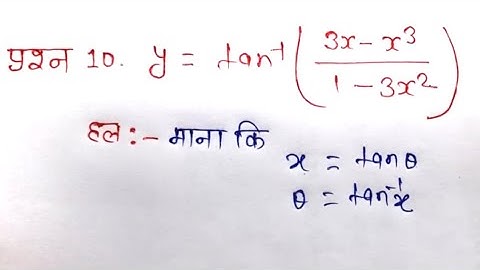 प्रश्न 10. y = tan⁻¹ ( (3x - x³) / (1 - 3x²) )
हल :- माना कि
x = tanθ
θ = tan⁻¹x